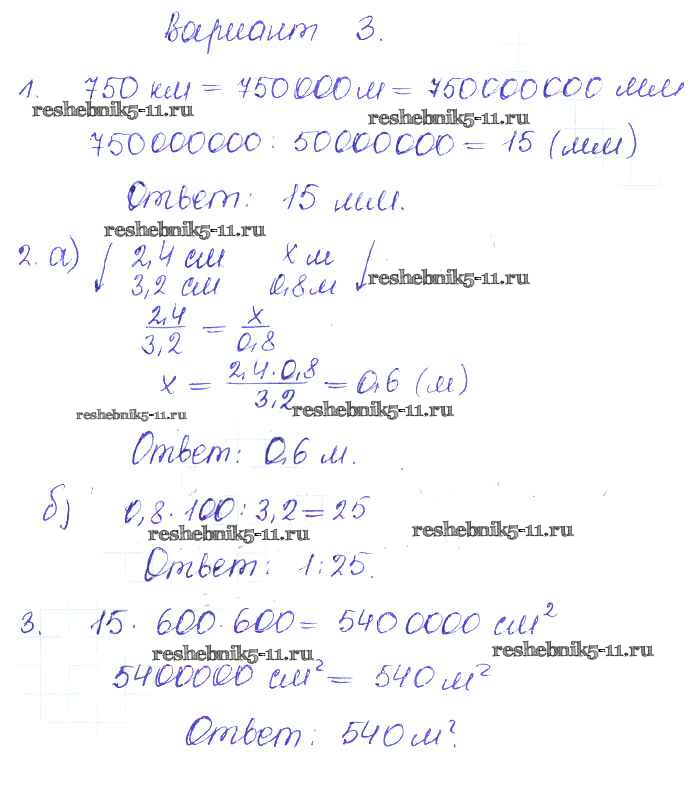 Вариант 3.
1. 750 км = 750000 м = 750000000 мм
reshebnik5-11.ru reshebnik5-11.ru
750000000 : 50000000 = 15 (мм)
Ответ: 15 мм.
reshebnik5-11.ru
2. а) ↓ 2,4 см x м ↓
3,2 см 0,8 м
reshebnik5-11.ru
2,4/3,2 = x/0,8
x = 2,4·0,8/3,2 = 0,6 (м)
reshebnik5-11.ru reshebnik5-11.ru
Ответ: 0,6 м.
б) 0,8·100:3,2=25
reshebnik5-11.ru reshebnik5-11.ru
Ответ: 1:25.
3. 15·600·600= 5400000 см²
reshebnik5-11.ru reshebnik5-11.ru
5400000 см² = 540 м²
Ответ: 540 м².